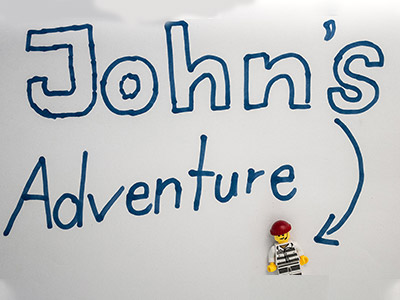 John's
Adventure